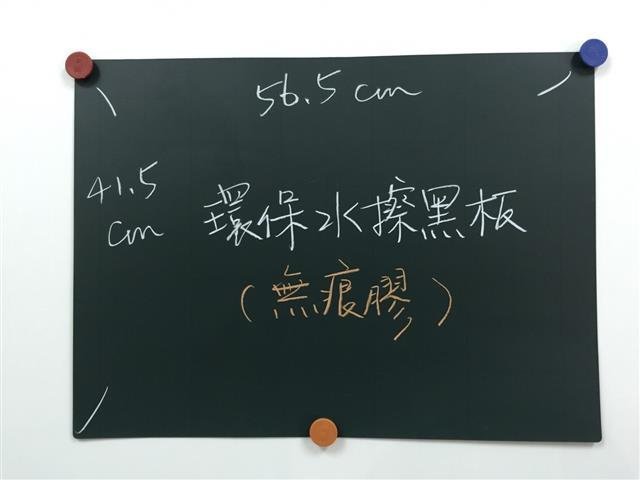 56.5 cm
41.5
cm
環保水擦黑板
(無痕膠)